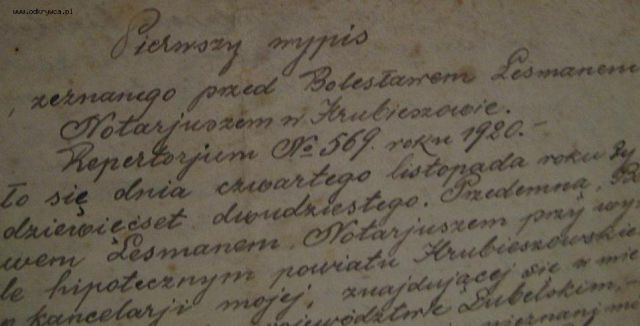 www.odkrywca.pl
Pierwszy wypis
, zeznanego przed Bolesławem Lesmanem
Notarjuszem w Hrubieszowie.
Repertorjum № 569. roku 1920.-
ło się dnia czwartego listopada roku ty
dziewięćset dwudziestego. Przedemną, Bo
wem Lesmanem, Notarjuszem przy wy
le hipotecznym powiatu Hrubieszowskie
kancelarji mojej, znajdującej się w mie
jewództwie Lubelskim,-
nieznani mo